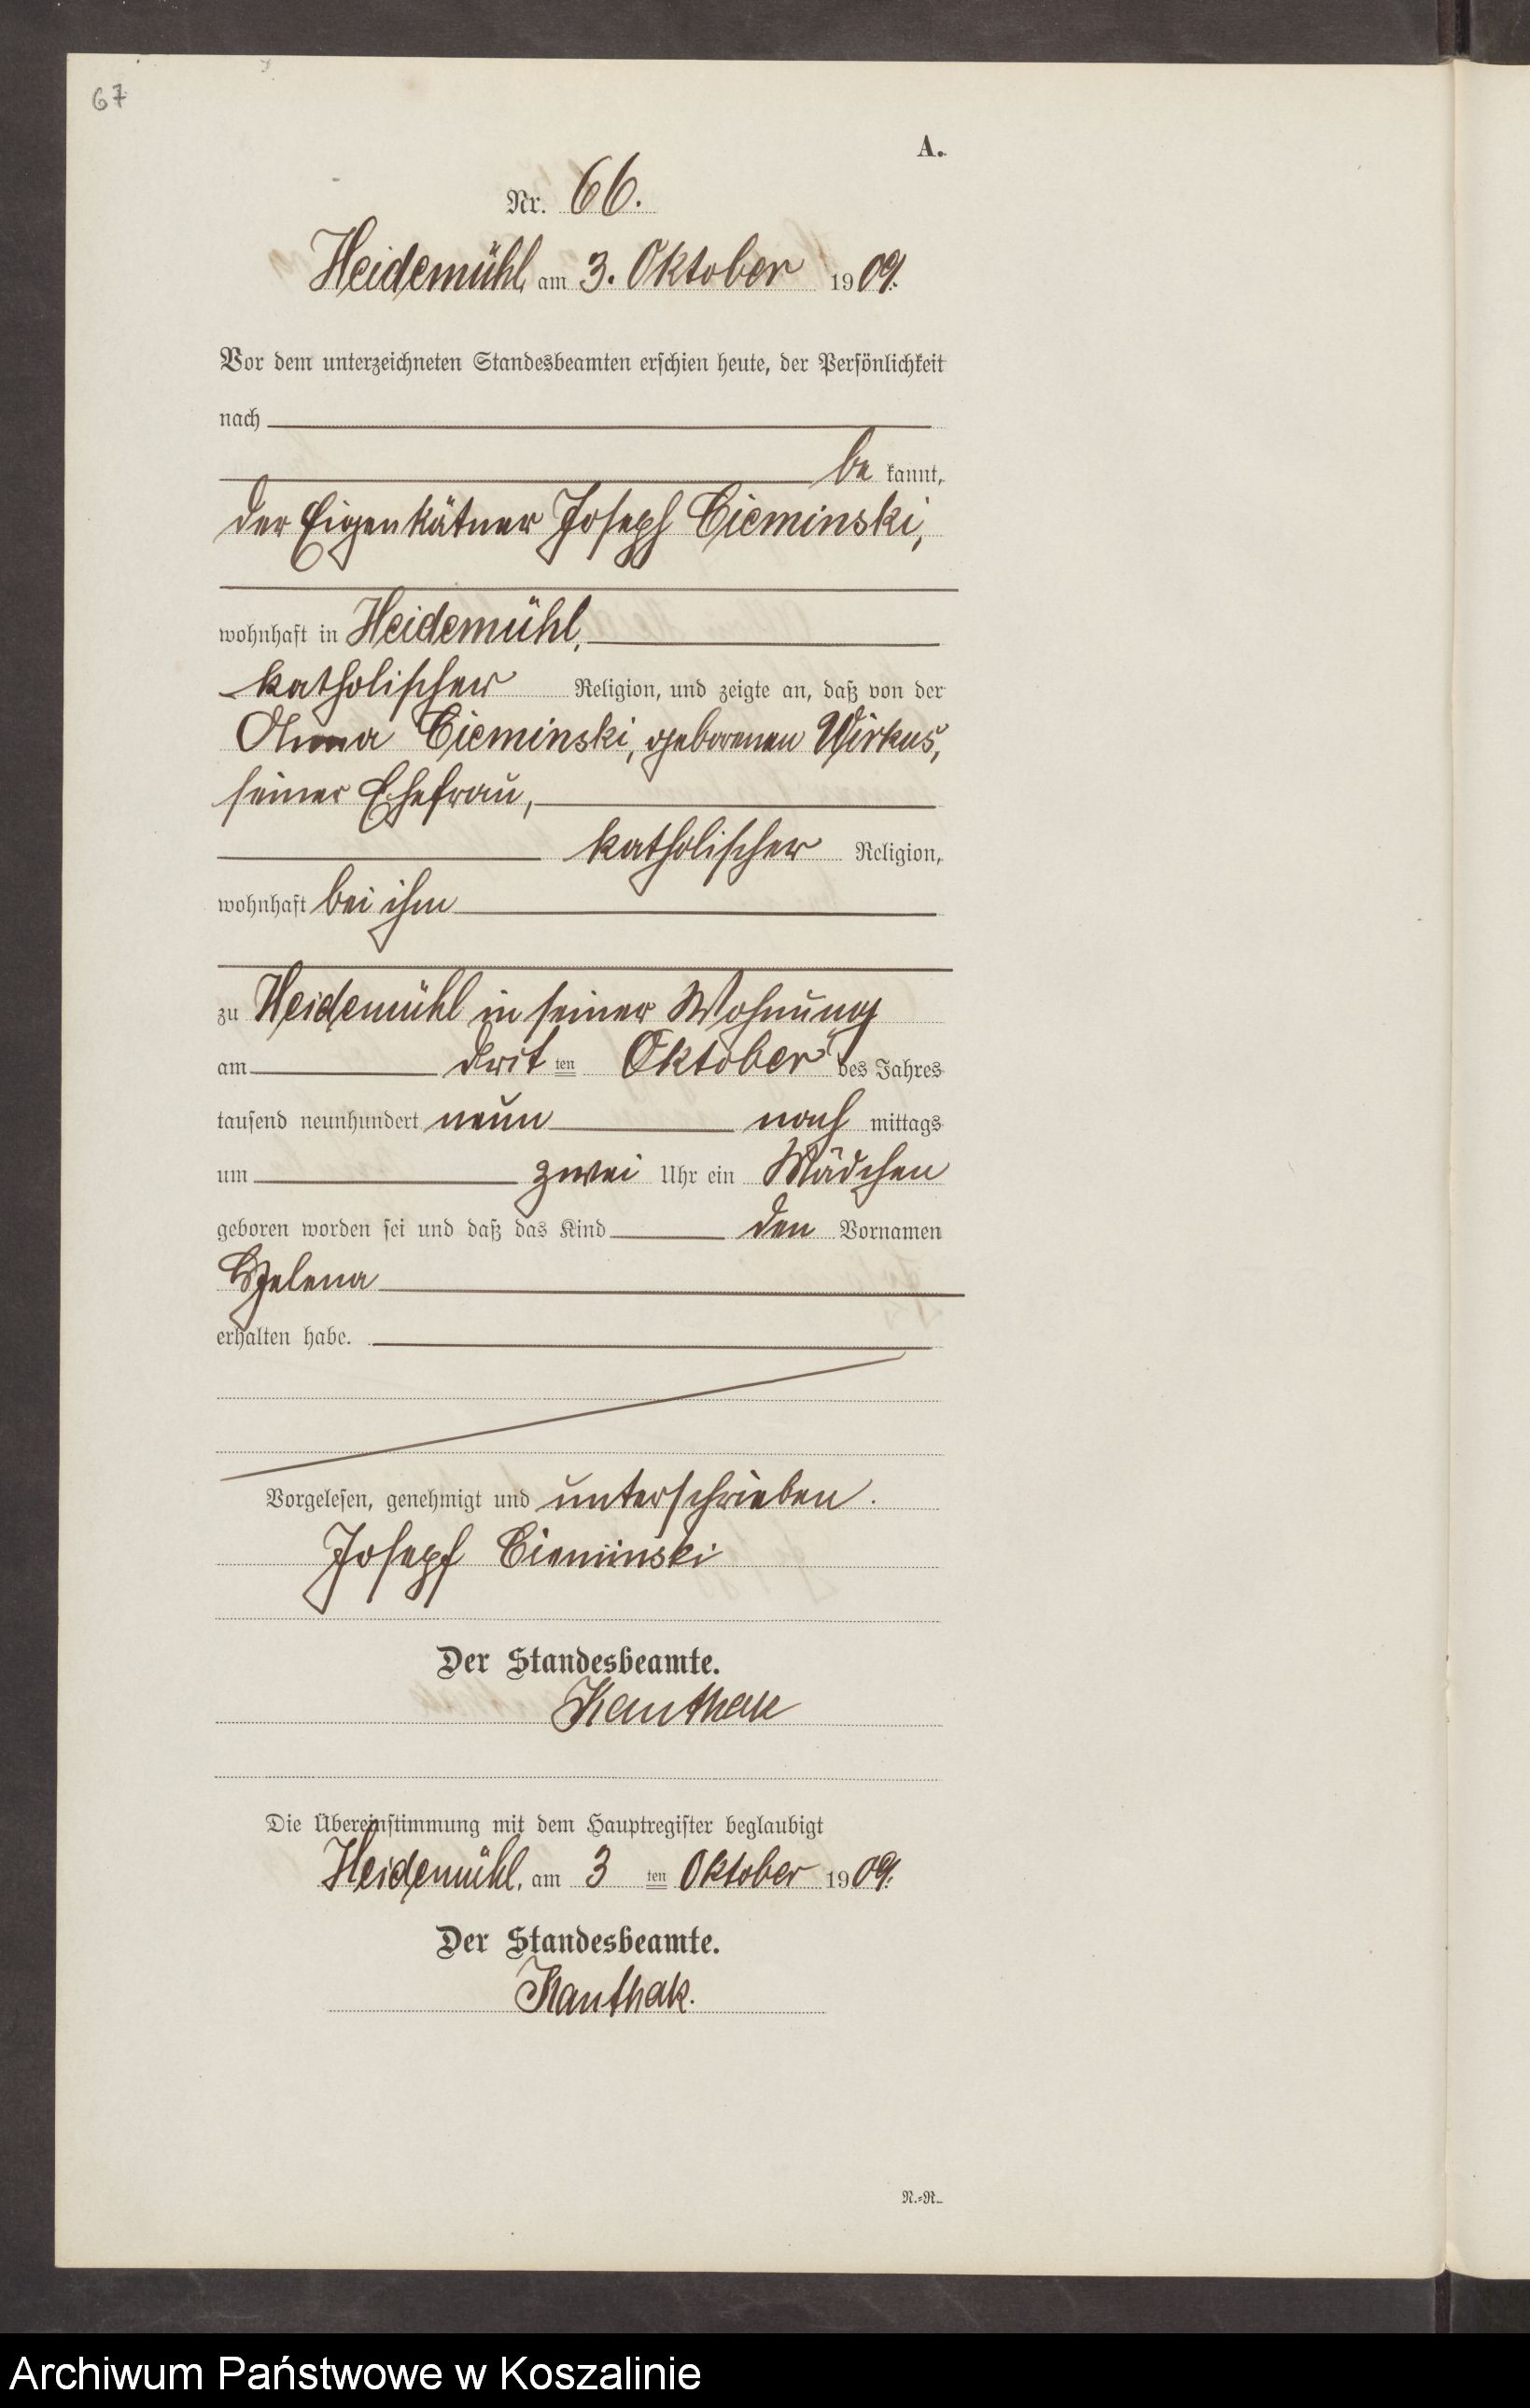 67
A.
Nr. 66.
Heidemühl, am 3. Oktober 1909.
Vor dem unterzeichneten Standesbeamten erschien heute, der Persönlichkeit
nach
be kannt,
der Eigenkätner Joseph Cieminski,
wohnhaft in Heidemühl,
katholischer Religion, und zeigte an, daß von der
Anna Cieminski, geborenen Wirkus,
seiner Ehefrau,
katholischer Religion,
wohnhaft bei ihm
zu Heidemühl in seiner Wohnung
am drit ten Oktober des Jahres
tausend neunhundert neun nach mittags
um zwei Uhr ein Mädchen
geboren worden sei und daß das Kind den Vornamen
Helena
erhalten habe.
Vorgelesen, genehmigt und unterschrieben.
Joseph Cieminski
Der Standesbeamte.
Kauthak
Die Übereinstimmung mit dem Hauptregister beglaubigt
Heidemühl, am 3 ten Oktober 1909.
Der Standesbeamte.
Kauthak.
N.=R.
Archiwum Państwowe w Koszalinie